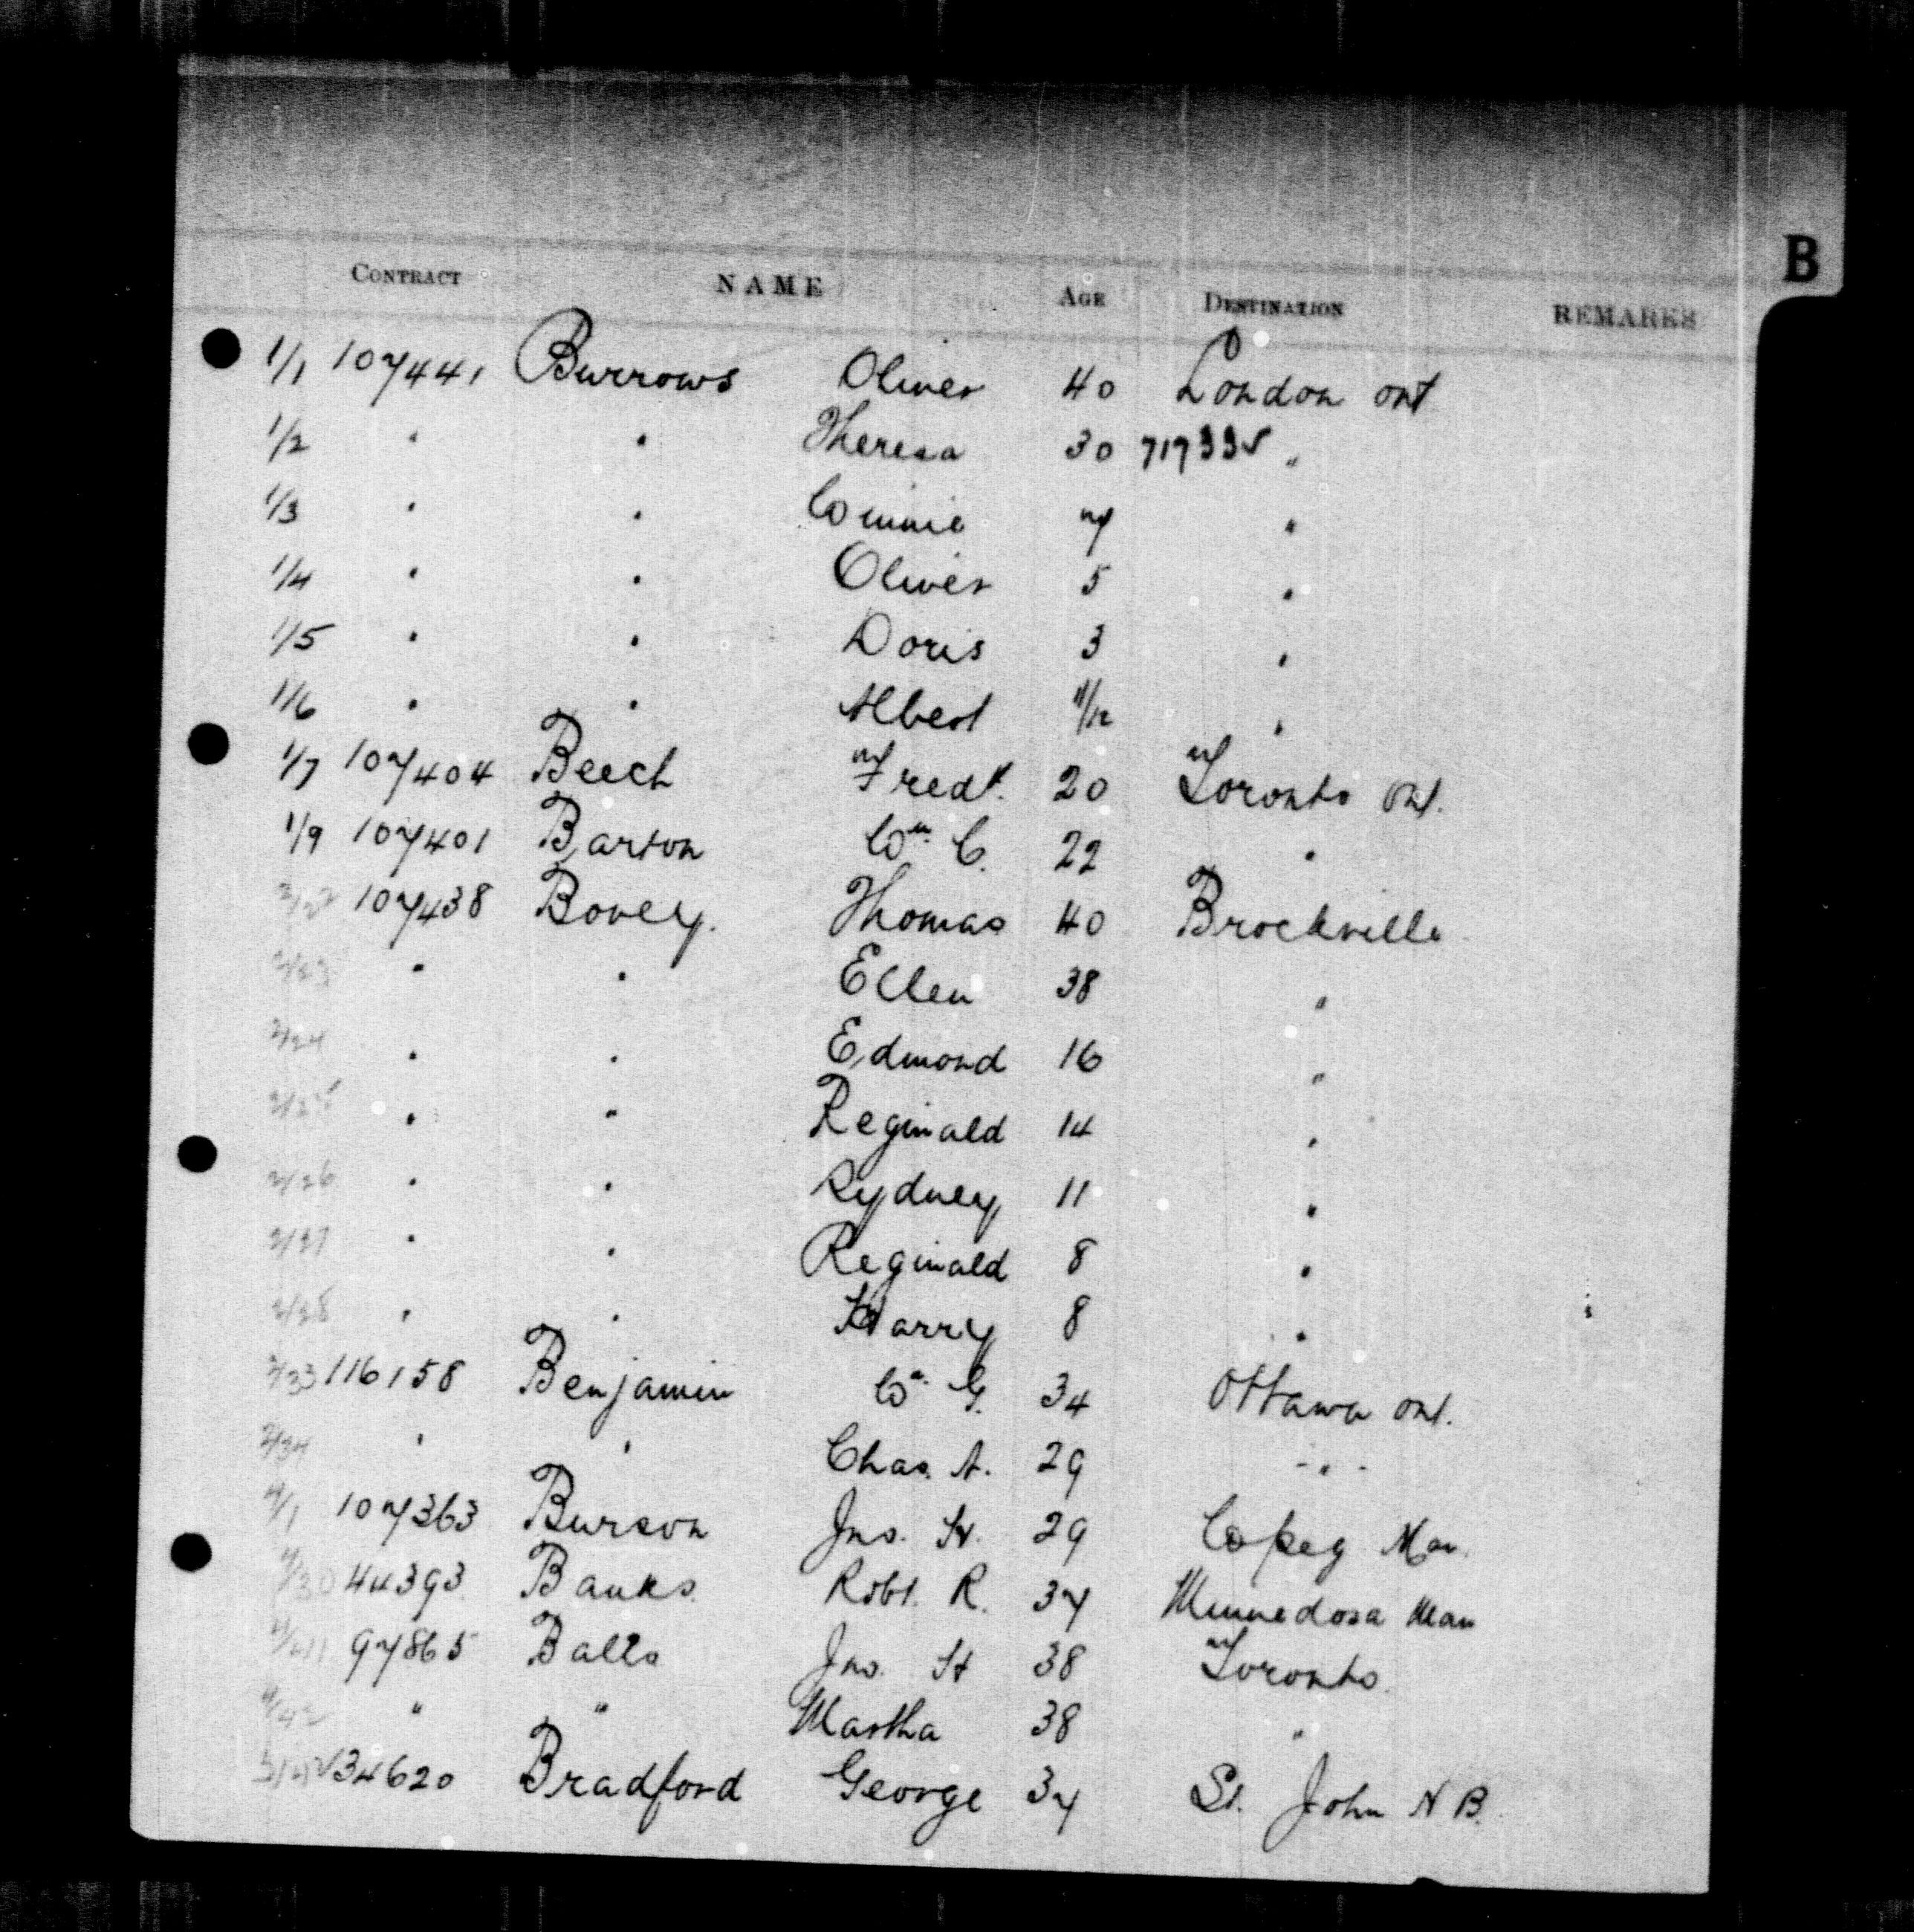 B
CONTRACT NAME AGE DESTINATION REMARKS
1/1 107441 Burrows Oliver 40 London Ont
1/2 " " Theresa 30 717335 "
1/3 " " Winnie 7 "
1/4 " " Oliver 5 "
1/5 " " Doris 3 "
1/6 " " Albert 11/12 "
1/7 107404 Beech Fredk. 20 Toronto Ont.
1/9 107401 Barton Wm. C. 22 "
2/22 107438 Bovey. Thomas 40 Brockville
2/23 " " Ellen 38 "
2/24 " " Edmond 16 "
2/25 " " Reginald 14 "
2/26 " " Sydney 11 "
2/27 " " Reginald 8 "
2/28 " " Harry 8 "
2/33 116158 Benjamin Wm G. 34 Ottawa Ont.
2/34 " " Chas. A. 29 " "
4/1 107363 Burson Jno. H. 29 Man.
4/30 44393 Banks Robt. R. 37 Minnedosa Man
97865 Balls Jno. H 38 Toronto.
4/42 " " Martha 38 "
34620 Bradford George 37 St. John N B.